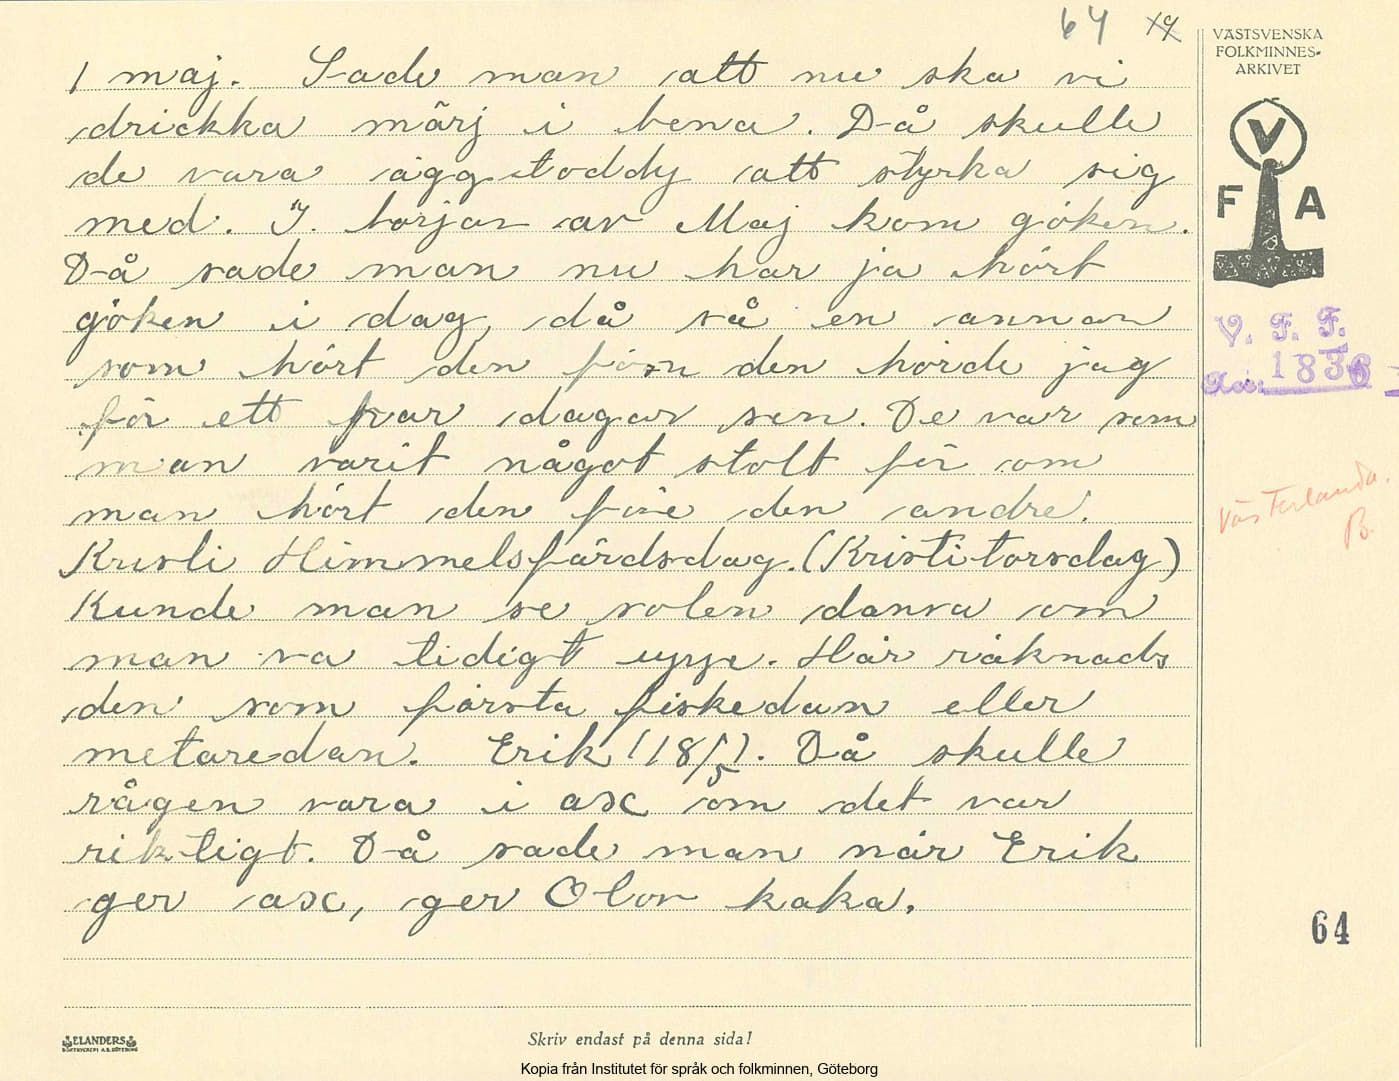 64 19
VÄSTSVENSKA
FOLKMINNES-
ARKIVET
V
F A
1 maj. Sade man att nu ska vi
drickka märj i bena. Då skulle
de vara äggtoddy att styrka sig
med. I början av Maj kom göken.
Då sade man nu har ja hört
göken i dag, då sa en annan
som hört den förn den hörde jag
för ett par dagar sen. De var som
man varit något stolt för om
man hört den före den andre.
Kristi Himmelsfärdsdag. (Kristitorsdag)
Kunde man se solen dansa om
man va tidigt uppe. Här räknads
den som första fiskedan eller
metaredan. Erik (18/5). Då skulle
rågen vara i ax om det var
riktigt. Då sade man når Erik
ger ax, ger Olov kaka.
V. F. F.
1836
Västerlanda.
B.
64
ELANDERS
BOKTRYCKERI A.B. GÖTEBORG
Skriv endast på denna sida!
Kopia från Institutet för språk och folkminnen, Göteborg